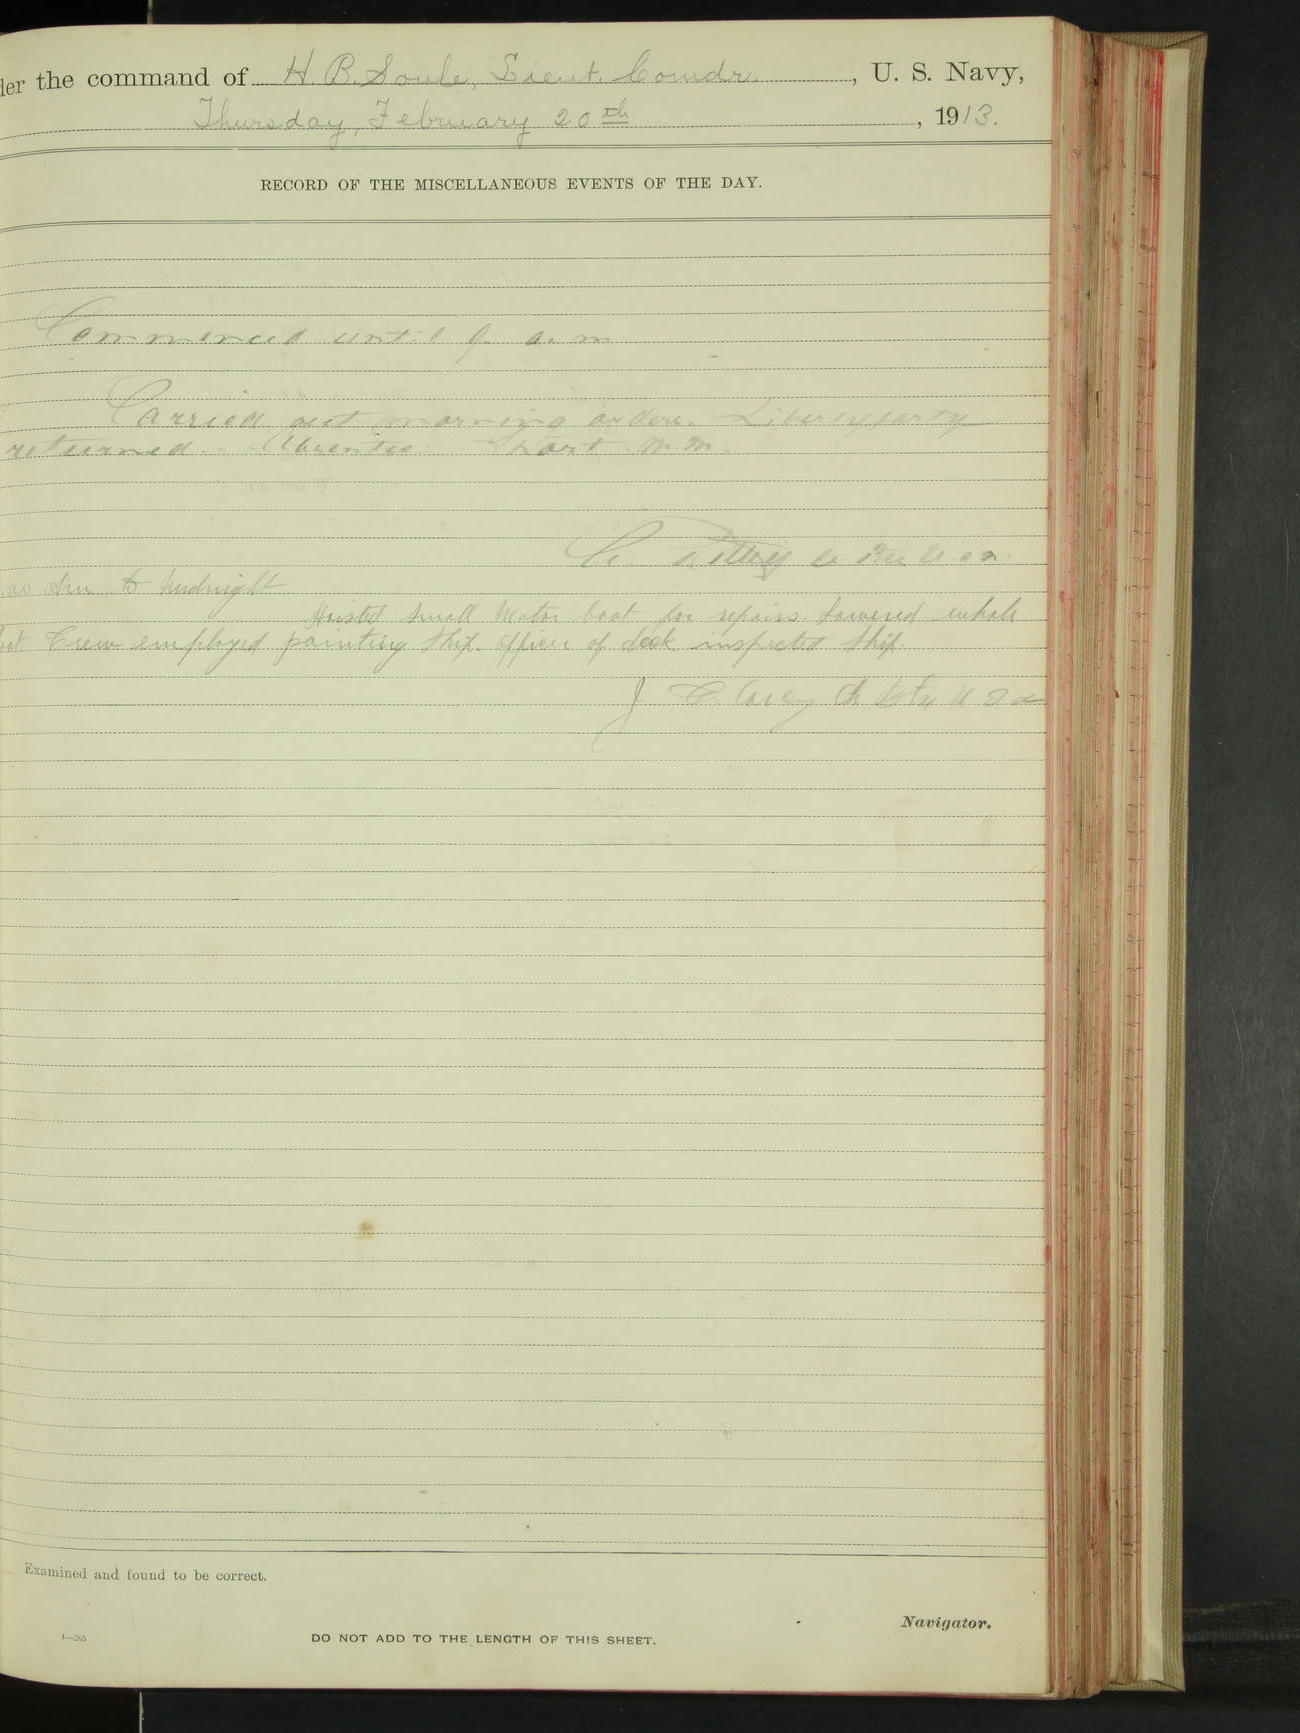 der the command of H. B. Soule, Lieut. Comdr., U. S. Navy,
Thursday, February 20th, 1913.
RECORD OF THE MISCELLANEOUS EVENTS OF THE DAY.
Commenced until 9 a. m
Carried out morning orders. Liberty party
returned. Absentee
to Midnight
Hoisted small Motor boat for repairs. Lowered whale
boat Crew employed painting Ship. officer of deck inspected Ship.
J. C. Carey Ch Btn U S N
Examined and found to be correct.
Navigator.
4—265
DO NOT ADD TO THE LENGTH OF THIS SHEET.